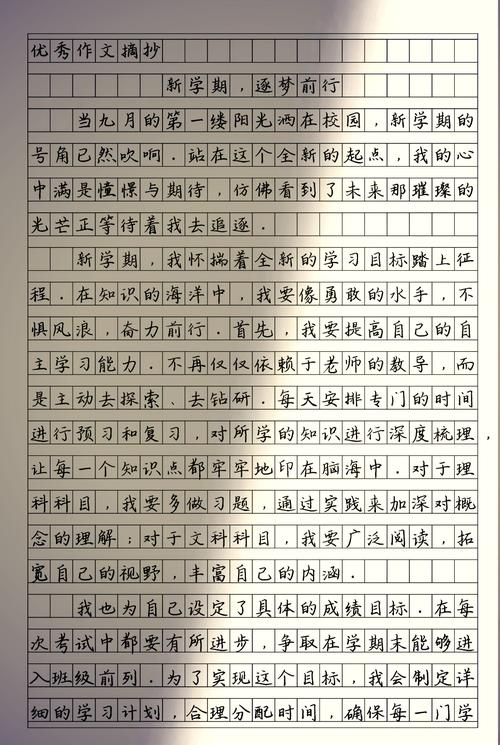 优秀作文摘抄
新学期，逐梦前行
当九月的第一缕阳光洒在校园，新学期的
号角已然吹响．站在这个全新的起点，我的心
中满是憧憬与期待，仿佛看到了未来那璀璨的
光芒正等待着我去追逐．
新学期，我怀揣着全新的学习目标踏上征
程．在知识的海洋中，我要像勇敢的水手，不
惧风浪，奋力前行．首先，我要提高自己的自
主学习能力．不再仅仅依赖于老师的教导，而
是主动去探索、去钻研．每天安排专门的时间
进行预习和复习，对所学的知识进行深度梳理，
让每一个知识点都牢牢地印在脑海中．对于理
科科目，我要多做习题，通过实践来加深对概
念的理解；对于文科科目，我要广泛阅读，拓
宽自己的视野，丰富自己的内涵．
我也为自己设定了具体的成绩目标．在每
次考试中都要有所进步，争取在学期末能够进
入班级前列．为了实现这个目标，我会制定详
细的学习计划，合理分配时间，确保每一门学